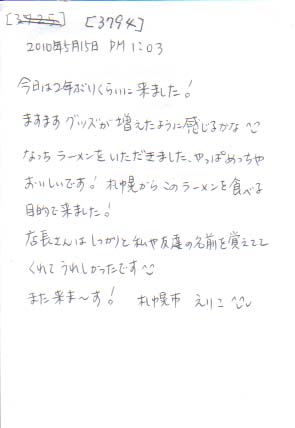 [3725] [3794]
2010年5月15日 PM 1:03
今日は2年ぶりくらいに来ました!
ますますグッズが増えたように感じるかな
なっちラーメンをいただきました、やっぱめっちゃ
おいしいです! 札幌からこのラーメンを食べる
目的で来ました!
店長さんはしっかりと私や友達の名前を覚えてて
くれてうれしかったです
また来ま〜す! 札幌市 えりこ